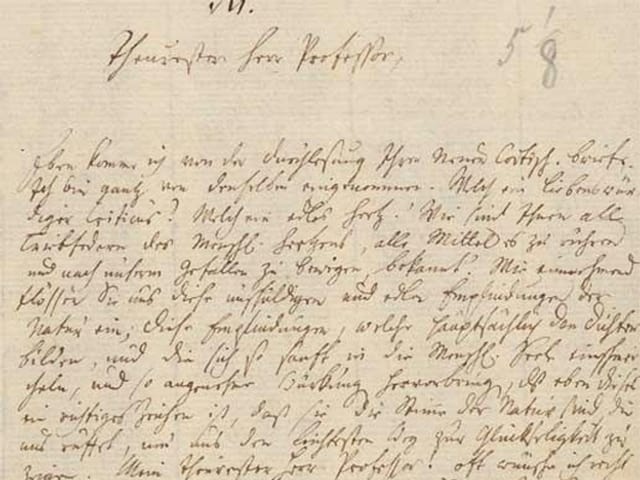 M.
Theurester Herr Professor,
5 1/8
Eben komme ich von der Durchlesung Ihrer Neuen Critisch. briefe.
Ich bin gantz von denselben eingenommen. Welch ein liebenswür
diger Criticus! Welch ein edles Hertz! Wie sind Ihnen alle
Triebfedern des Menschl. Hertzens, alle Mittel es zu rühren
und nach unserm Gefallen zu bewegen, bekannt! Wie einnehmend
flössen Sie uns diese unschuldigen und edlen Empfindungen der
Natur ein; diese Empfindungen, welche hauptsächlich den Dichter
bilden, und die sich so sanft in die Menschl. Seele einschmei
cheln, und so angenehme Würkung hervorbring, daß eben dieses
ein richtiges Zeichen ist, daß sie die Stimme der Natur sind die
uns ruffet, um uns den leichtesten Weg zur Glückseligkeit zu
zeigen. Mein Theurester Herr Professor! oft wünsche ich recht